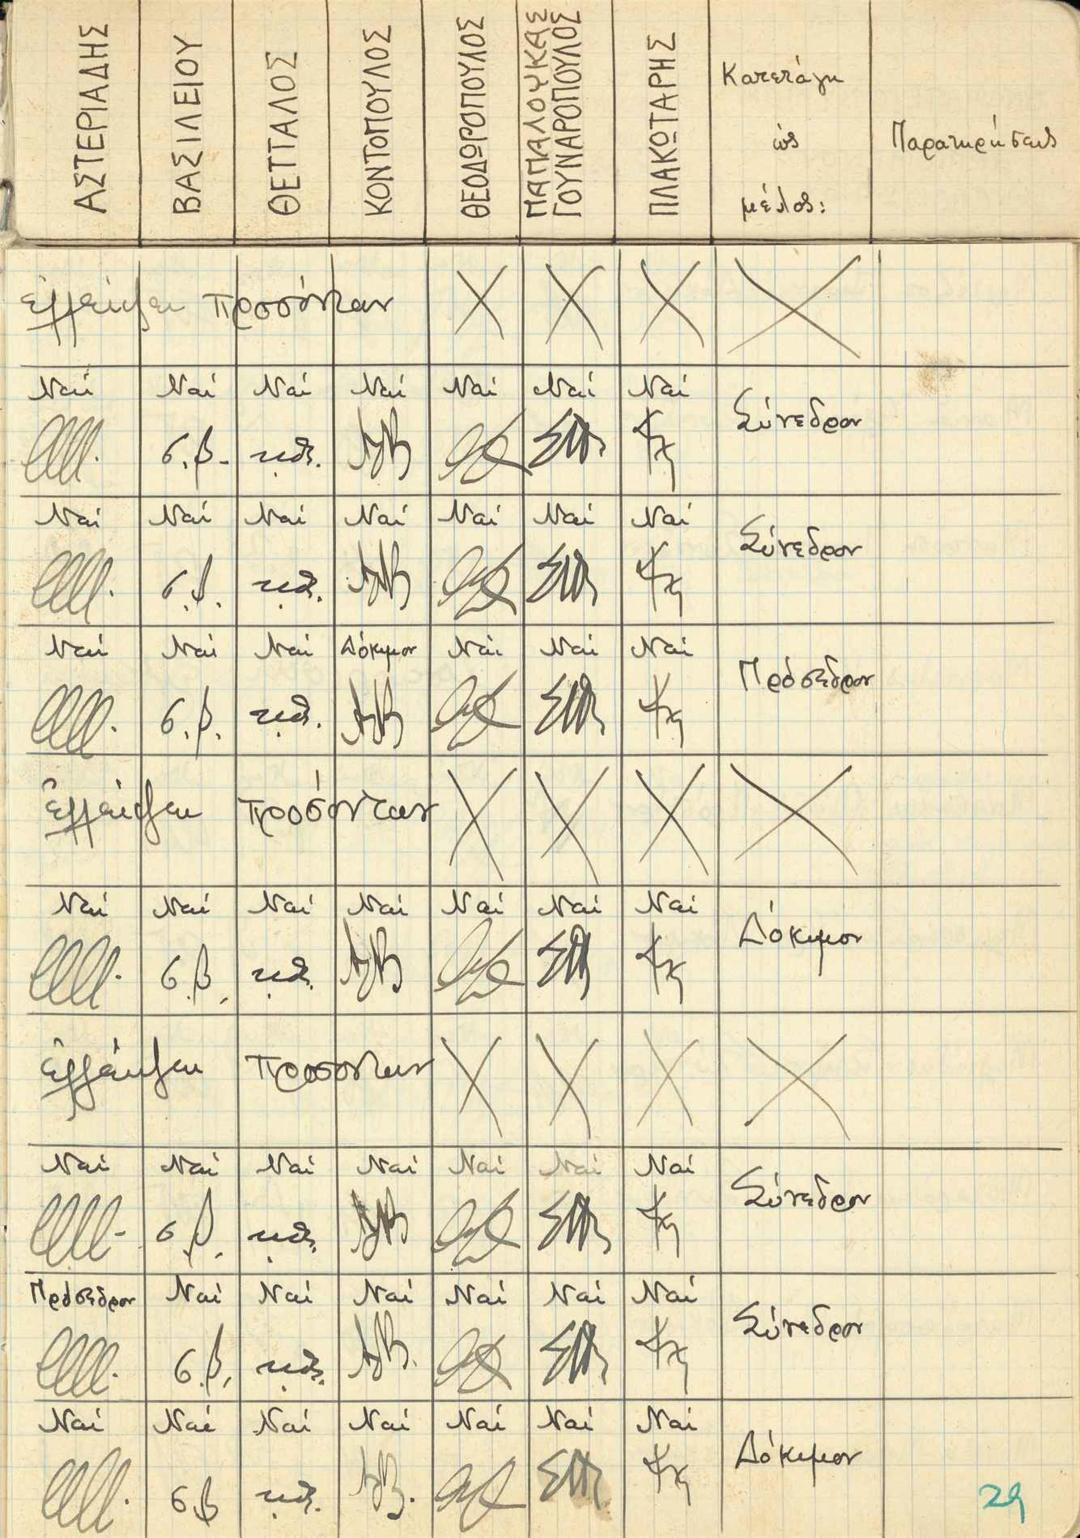 ΑΣΤΕΡΙΑΔΗΣ
ΒΑΣΙΛΕΙΟΥ
ΘΕΤΤΑΛΟΣ
ΚΟΝΤΟΠΟΥΛΟΣ
ΘΕΟΔΩΡΟΠΟΥΛΟΣ
ΠΑΠΑΛΟΥΚΑΣ
ΓΟΥΝΑΡΟΠΟΥΛΟΣ
ΠΛΑΚΩΤΑΡΗΣ
Κατετάγη
ὡς
μέλος:
Παρατηρήσεις
ἐλλείψει προσόντων
Ναί Ναί Ναί Ναί Ναί Ναί Ναί Σύνεδρον
σ.β.
Ναί Ναί Ναί Ναί Ναί Ναί Ναί Σύνεδρον
σ.β.
Ναί Ναί Ναί Δόκιμον Ναί Ναί Ναί Πρόσεδρον
σ.β.
ἐλλείψει προσόντων
Ναί Ναί Ναί Ναί Ναί Ναί Ναί Δόκιμον
σ.β.
ἐλλείψει προσόντων
Ναί Ναί Ναί Ναί Ναί Ναί Ναί Σύνεδρον
σ.β.
Πρόσεδρον Ναί Ναί Ναί Ναί Ναί Ναί Σύνεδρον
σ.β.
Ναί Ναί Ναί Ναί Ναί Ναί Ναί Δόκιμον
σβ
29